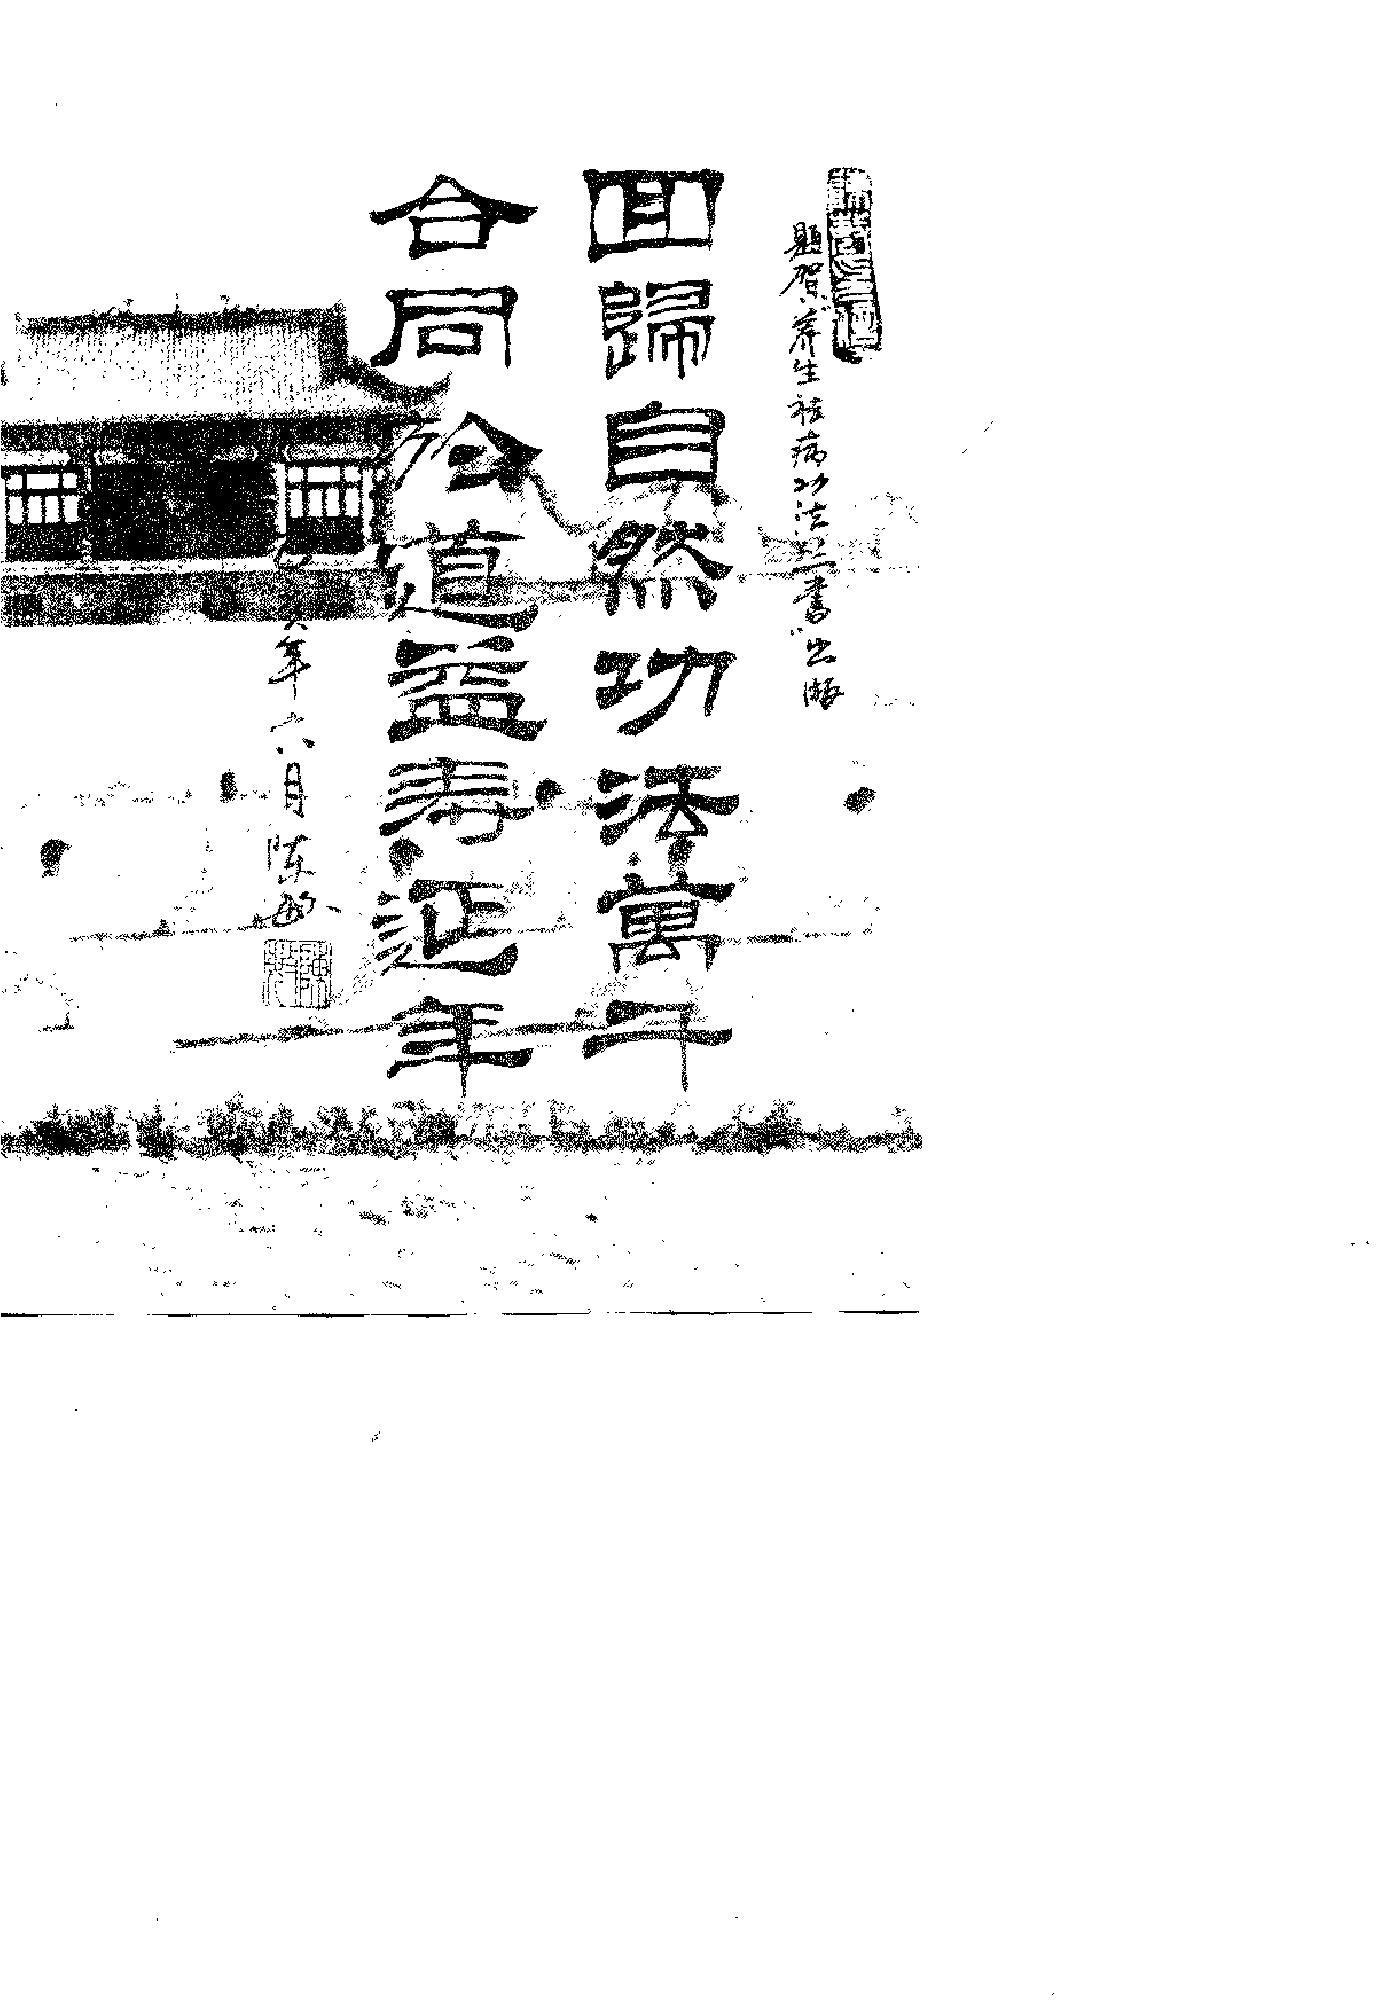 题贺"养生祛病功法書"出版
回歸自然功法萬千
合同於道益寿延年
年六月陈